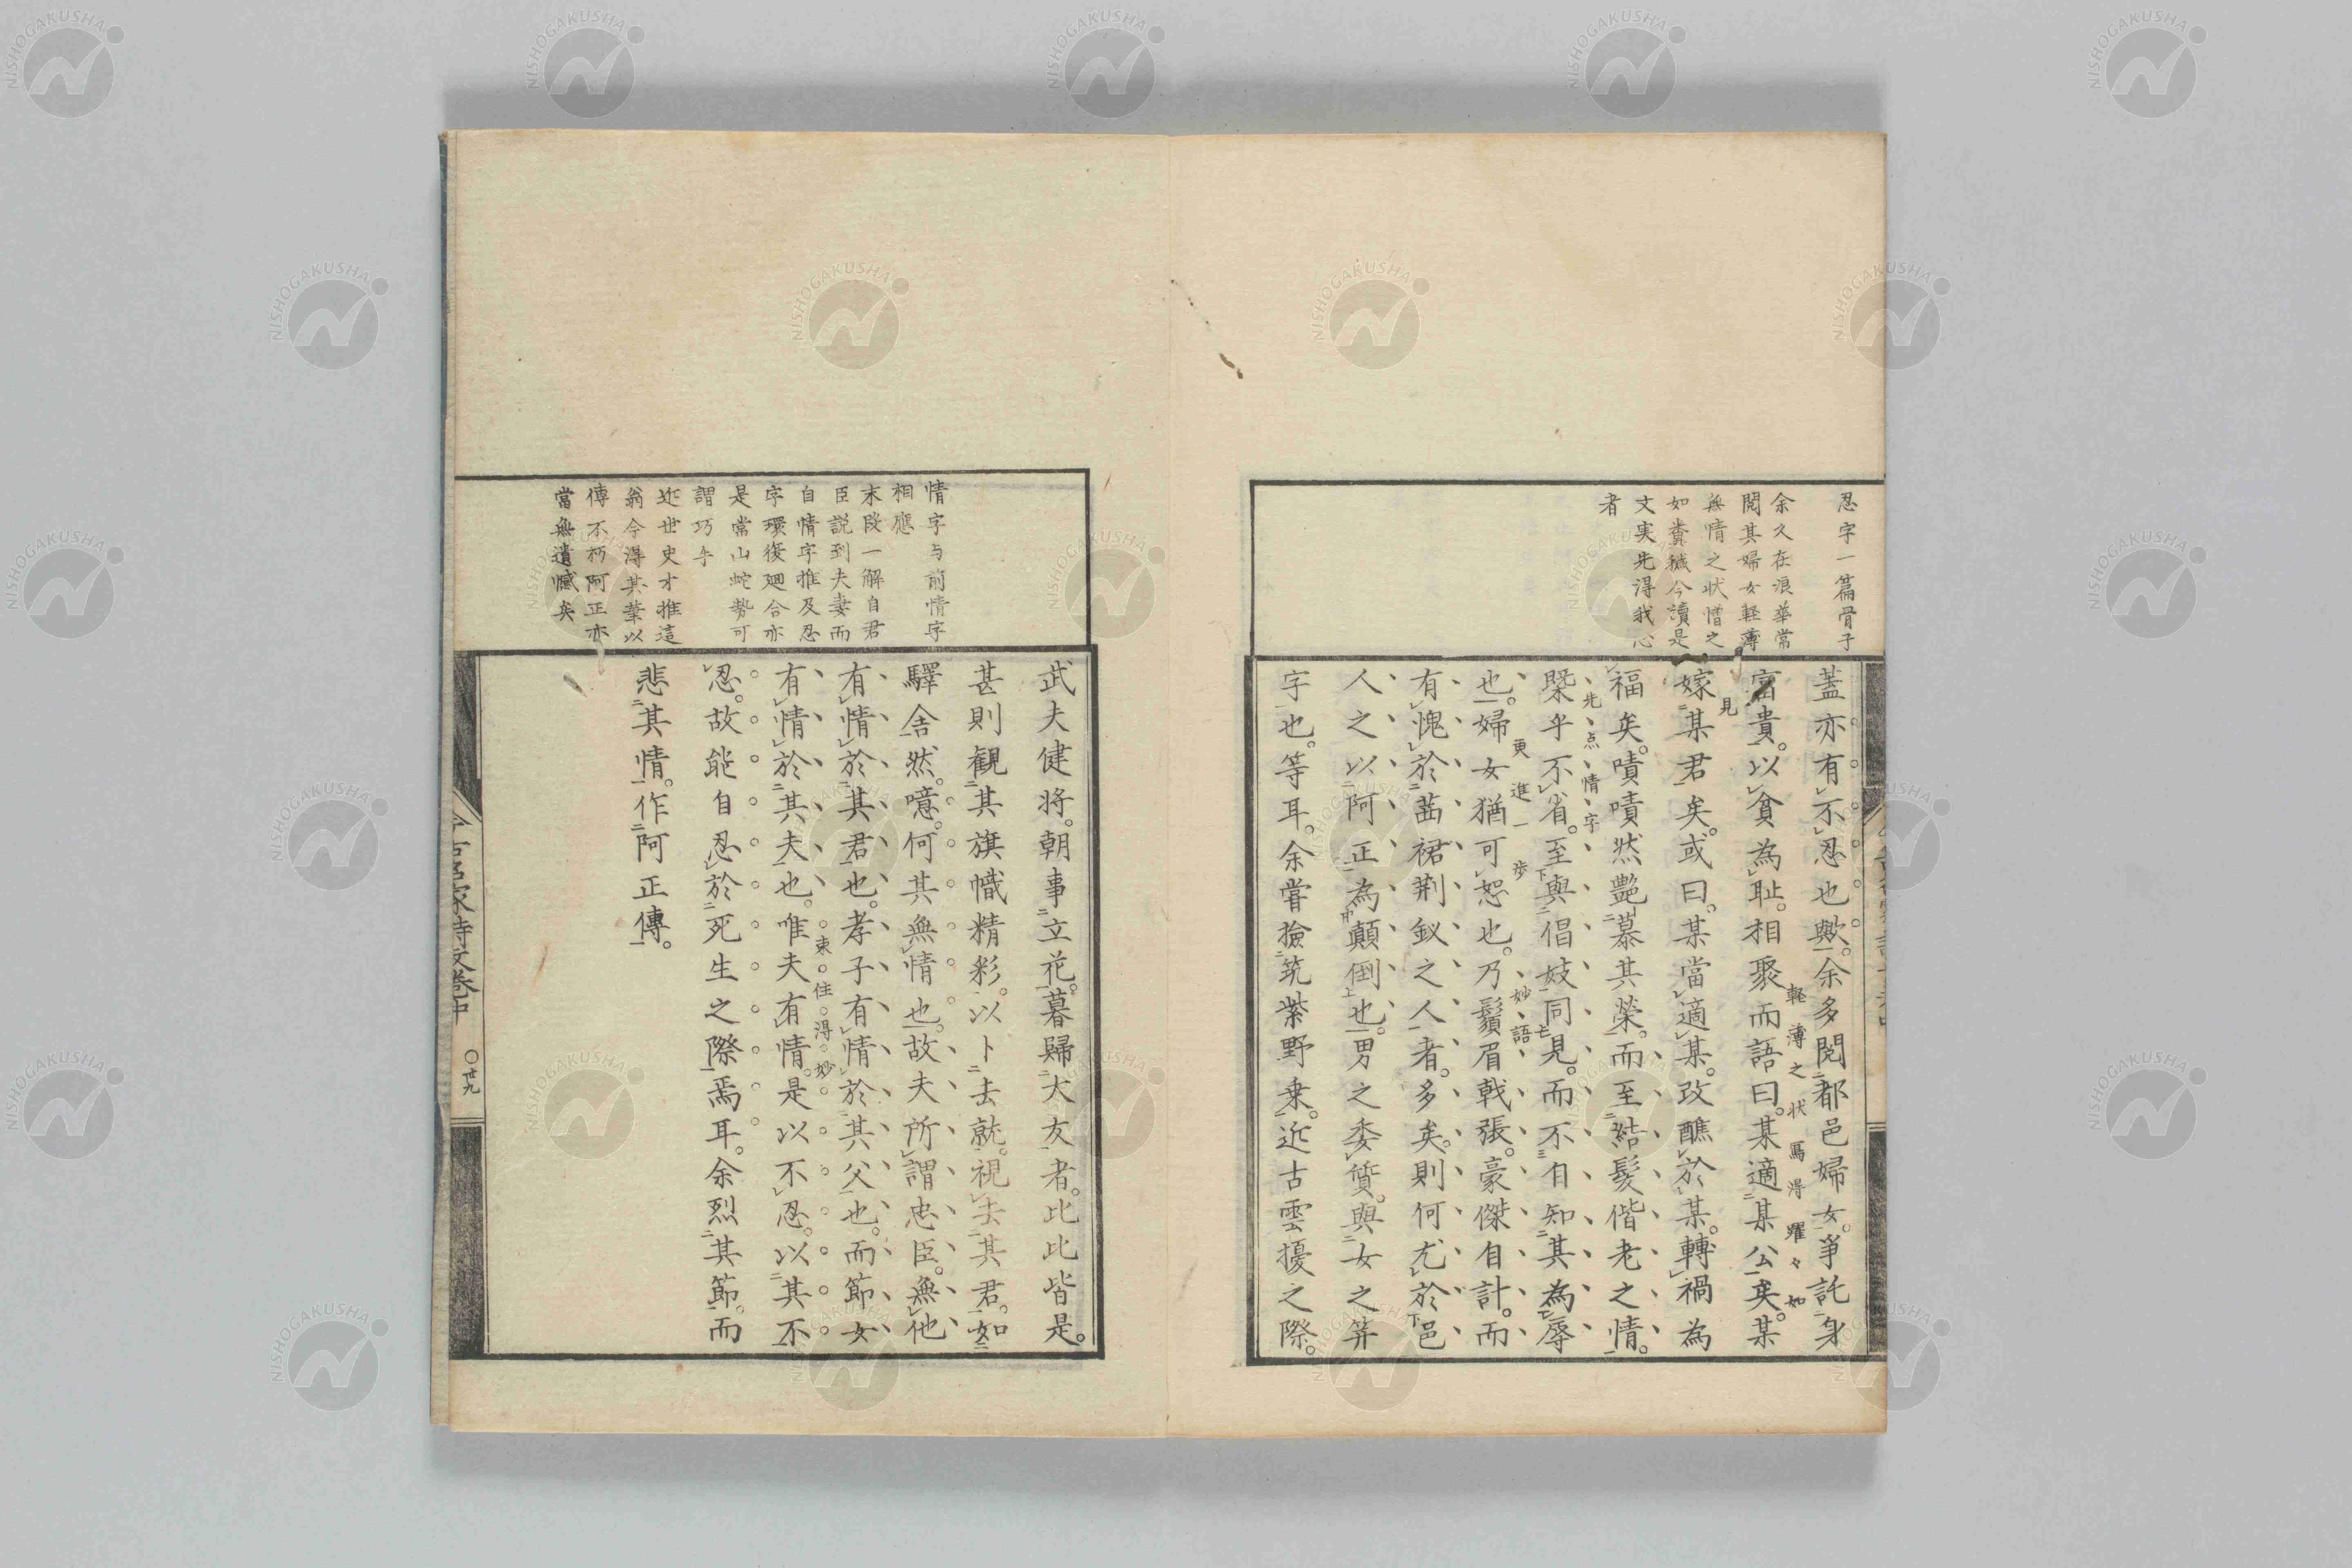 忍字一篇骨子
余久在浪華常
閲其婦女軽薄
無情之状憎之
如糞穢今讀是
文実先得我心
者
蓋亦有不忍也歟。余多閲都邑婦女。爭託身
軽薄之状馬得躍々如
富貴。以貧為耻。相聚而語曰。某適某公矣。某
見
嫁某君矣。或曰。某當適某。改醮於某。轉禍為
福矣。嘖嘖然艷慕其榮。而至結髮偕老之情。
先点情字
槩乎不省。至與倡妓同見。而不自知其為辱
更進一歩
妙語
也。婦女猶可恕也。乃鬚眉戟張。豪傑自計。而
有愧於茜裙荆釵之人者。多矣。則何尤於邑
人之以阿正為顛倒也。男之委質。與女之笄
字也。等耳。余嘗撿筑紫野乗。近古雲擾之際。
情字与前情字
相應
末段一解自君
臣説到夫妻而
自情字推及忍
字環復廻合亦
是常山蛇勢可
謂巧乎
近世史才推這
翁今得其筆以
傳不朽阿正亦
當無遺憾矣
武夫健将。朝事立花。暮歸大友者。比比皆是。
甚則観其旗幟精彩。以卜去就。視去其君。如
驛舍然。噫。何其無情也。故夫所謂忠臣。無他
有情於其君也。孝子有情於其父也。而節女
有情於其夫也。唯夫有情。是以不忍。以其不
東住得妙
忍。故能自忍於死生之際焉耳。余烈其節。而
悲其情。作阿正傳。
〇卅九
NISHOGAKUSHA